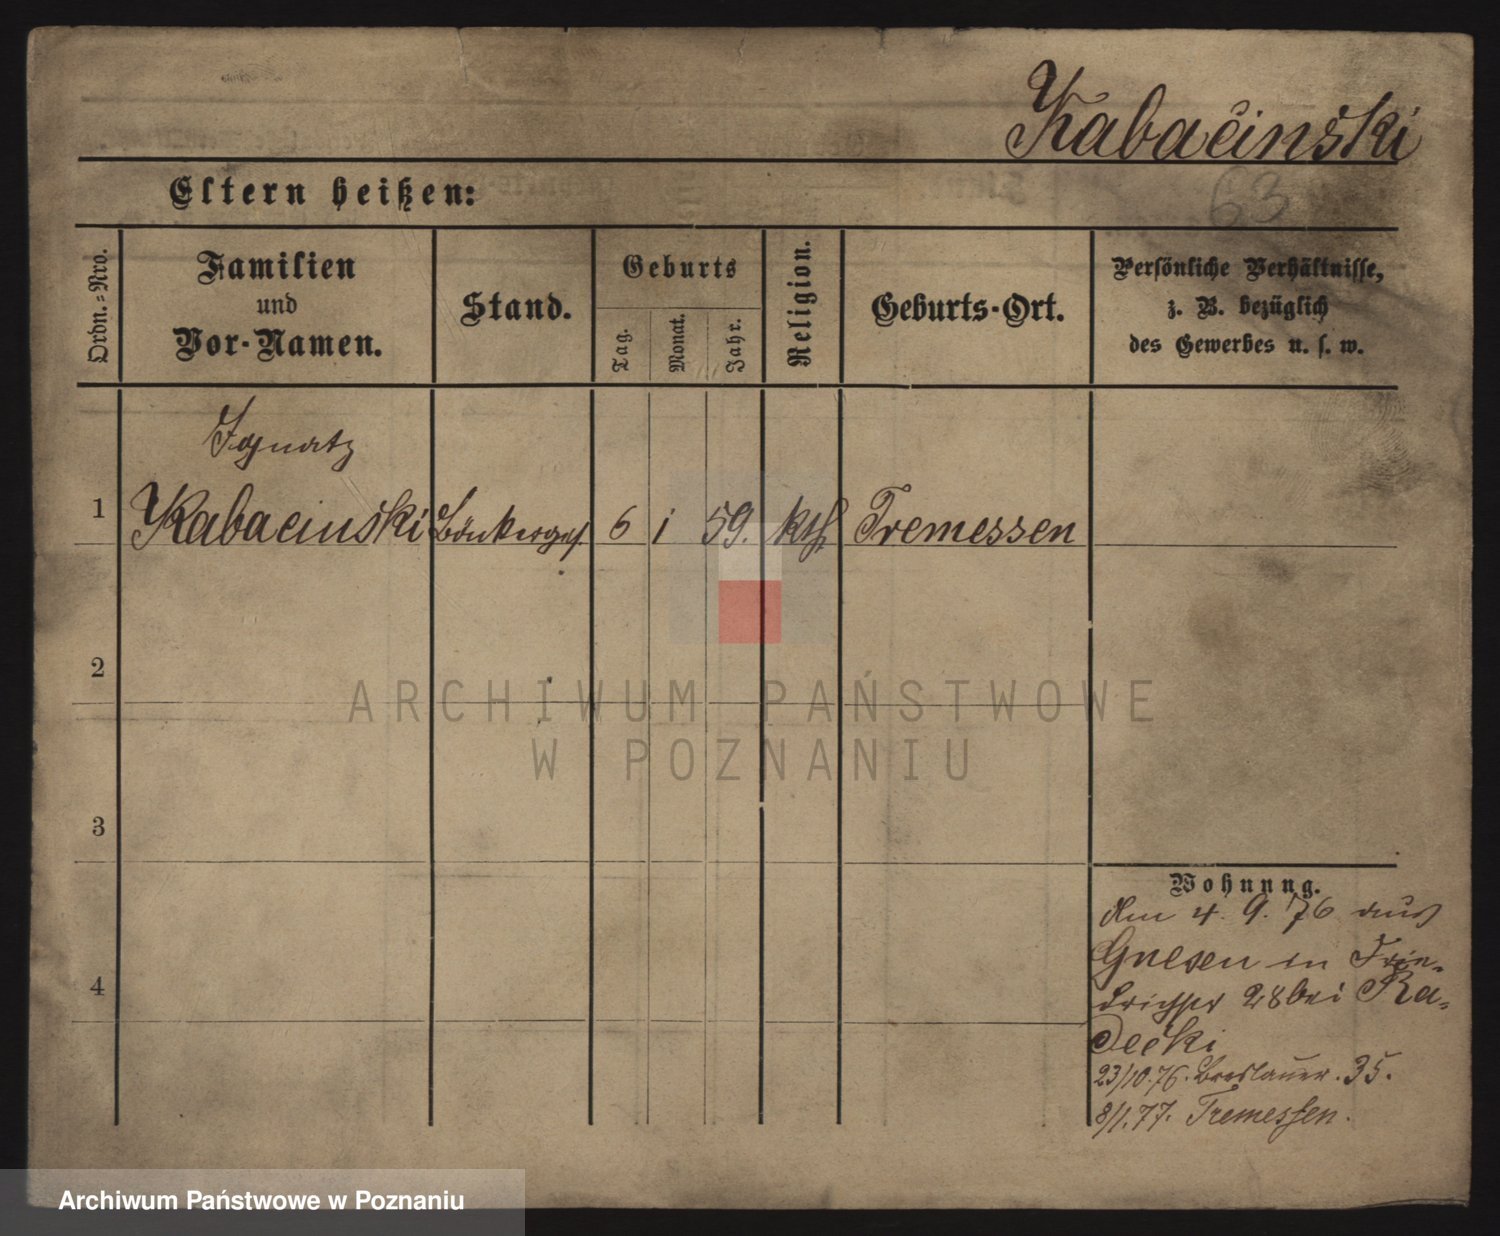 Kabaćinski
63
Eltern heißen:
Ordn.=Nro.
Familien
und
Vor-Namen.
Stand.
Geburts
Tag.
Monat.
Jahr.
Religion.
Geburts-Ort.
Persönliche Verhältnisse,
z. B. bezüglich
des Gewerbes u. s. w.
Ignatz
1 Kabacinski 6 1 59. kth Tremessen
2
ARCHIWUM PAŃSTWOWE
W POZNANIU
3
Wohnung.
Am 4. 9. 76 aus
Gnesen in Frie-
drichstr 28 bei Ra-
decki
4
23/10.76. Breslauer. 35.
8/1.77. Tremessen.
Archiwum Państwowe w Poznaniu